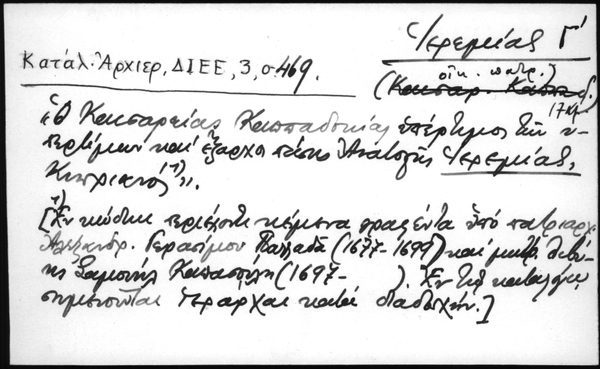 Ἱερεμίας Γ΄
Κατάλ. Ἀρχιερ., ΔΙΕΕ, 3, σ. 469.
οἰκ. πατρ.)
(Καισαρ. Καππαδ.
«Ὁ Καισαρείας Καππαδοκίας ὑπέρτιμος τῶν ὑ-
περτίμων καὶ ἔξαρχος πάσης Ἀνατολῆς Ἱερεμίας,
Κυπριανός¹)».
[¹) Ἐν κώδικι περιέχοντι κείμενα γραφέντα ὑπὸ πατριάρχ.
Ἀλεξανδρ. Γερασίμου Παλλαδᾶ (1677-1699) καὶ μητρ. Λιβύ-
ης Σαμουὴλ Καπασούλη (1697-    ). Ἐν τῷ καταλόγῳ
σημειοῦται Ἱεράρχαι κατὰ διαδοχήν.]